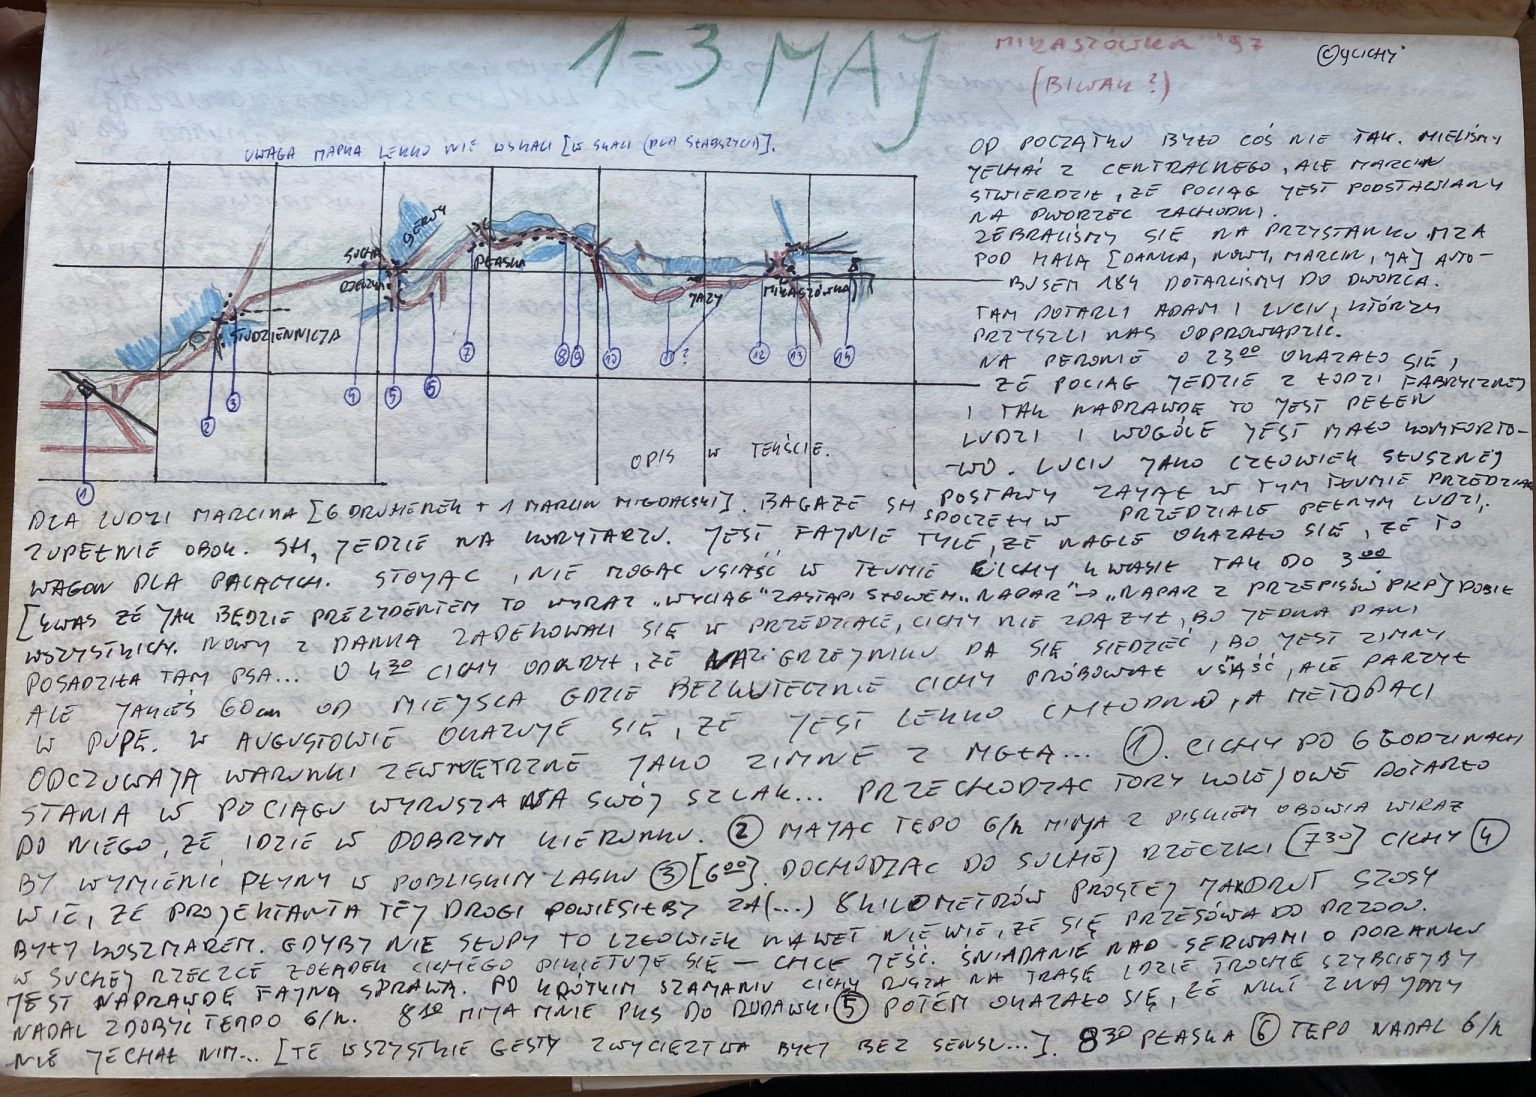 1-3 MAJ
MIKASZÓWKA '97
(BIWAK?)
© YCICHY
UWAGA MAPKA LEKKO NIE W SKALI [W SKALI (DLA SŁABSZYCH)].
SERWY
SUCHA
RZECZKA
PŁASKA
STUDZIENNICZA
JAZY
MIKASZÓWKA
1 2 3 4 5 6 7 8 9 10 11 ? 12 13 14
OPIS W TEKŚCIE.
OD POCZĄTKU BYŁO COŚ NIE TAK. MIELIŚMY
JECHAĆ Z CENTRALNEGO, ALE MARCIN
STWIERDZIŁ, ŻE POCIĄG JEST PODSTAWIANY
NA DWORZEC ZACHODNI.
ZEBRALIŚMY SIĘ NA PRZYSTANKU MZA
POD HALĄ [DANKA, NOWY, MARCIN, JA] AUTO-
BUSEM 184 DOTARLIŚMY DO DWORCA.
TAM DOTARLI ADAM I LUCIU, KTÓRZY
PRZYSZLI NAS ODPROWADZIĆ.
NA PERONIE O 23⁰⁰ OKAZAŁO SIĘ,
ŻE POCIĄG JEDZIE Z ŁODZI FABRYCZNEJ
I TAK NAPRAWDĘ TO JEST PEŁEN
LUDZI I WOGÓLE JEST MAŁO KOMFORTO-
WO. LUCIU JAKO CZŁOWIEK SŁUSZNEJ
POSTAWY ZAJĄŁ W TYM TŁUMIE PRZEDZIAŁ
DLA LUDZI MARCINA [6 DRUHENEK + 1 MARCIN MIGDALSKI]. BAGAŻE SH SPOCZĘŁY W PRZEDZIALE PEŁNYM LUDZI,
ZUPEŁNIE OBOK. SH, JEDZIE NA KORYTARZU. JEST FAJNIE TYLE, ŻE NAGLE OKAZAŁO SIĘ, ŻE TO
WAGON DLA PALĄCYCH. STOJĄC, NIE MOGĄC USIĄŚĆ W TŁUMIE CICHY KWASIŁ TAK DO 3⁰⁰
[KWAS ŻE JAK BĘDZIE PREZYDENTEM TO WYRAZ "WYCIĄG" ZASTĄPI SŁOWEM "NAPAR" → "NAPAR Z PRZEPISÓW PKP] DOBIŁ
WSZYSTKICH. NOWY Z DANKĄ ZADEKOWALI SIĘ W PRZEDZIALE, CICHY NIE ZDĄŻYŁ, BO JEDNA PANI
POSADZIŁA TAM PSA... O 4³⁰ CICHY ODKRYŁ, ŻE NA GRZEJNIKU DA SIĘ SIEDZIEĆ, BO JEST ZIMNY
ALE JAKIEŚ 60cm OD MIEJSCA GDZIE BEZSKUTECZNIE CICHY PRÓBOWAŁ USIĄŚĆ, ALE PARZYŁ
W PUPĘ. W AUGUSTOWIE OKAZUJE SIĘ, ŻE JEST LEKKO CHŁODNO, A METOPACI
ODCZUWAJĄ WARUNKI ZEWNĘTRZNE JAKO ZIMNE Z MGŁĄ... ①. CICHY PO 6 GODZINACH
STANIA W POCIĄGU WYRUSZA NA SWÓJ SZLAK... PRZECHODZĄC TORY KOLEJOWE DOTARŁO
DO NIEGO, ŻE IDZIE W DOBRYM KIERUNKU. ② MAJĄC TEPO 6/h MIJA Z PISKIEM OBÓWIA WIRAŻ
BY WYMIENIĆ PŁYNY W POBLISKIM LASKU ③ [6⁰⁰]. DOCHODZĄC DO SUCHEJ RZECZKI [7³⁰] CICHY ④
WIE, ŻE PROJEKTANTA TEJ DROGI POWIESIŁBY ZA (...) 8 KILOMETRÓW PROSTEJ JAK DRUT SZOSY
BYŁY KOSZMAREM. GDYBY NIE SŁUPY TO CZŁOWIEK NAWET NIE WIE, ŻE SIĘ PRZESÓWA DO PRZODU.
W SUCHEJ RZECZCE ŻOŁĄDEK CICHEGO PIKIETUJE SIĘ — CHCE JEŚĆ. ŚNIADANIE NAD SERWAMI O PORANKU
JEST NAPRAWDĘ FAJNĄ SPRAWĄ. PO KRÓTKIM SZAMANIU CICHY RUSZA NA TRASĘ IDZIE TROCHĘ SZYBCIEJ BY
NADAL ZDOBYĆ TEMPO 6/h. 8¹⁰ MIJA MNIE PKS DO RUDAWKI ⑤ POTEM OKAZAŁO SIĘ, ŻE NIKT ZNAJOMY
NIE JECHAŁ NIM... [TE WSZYSTKIE GESTY ZWYCIĘZTWA BYŁY BEZ SENSU...]. 8³⁰ PŁASKA ⑥ TEPO NADAL 6/h